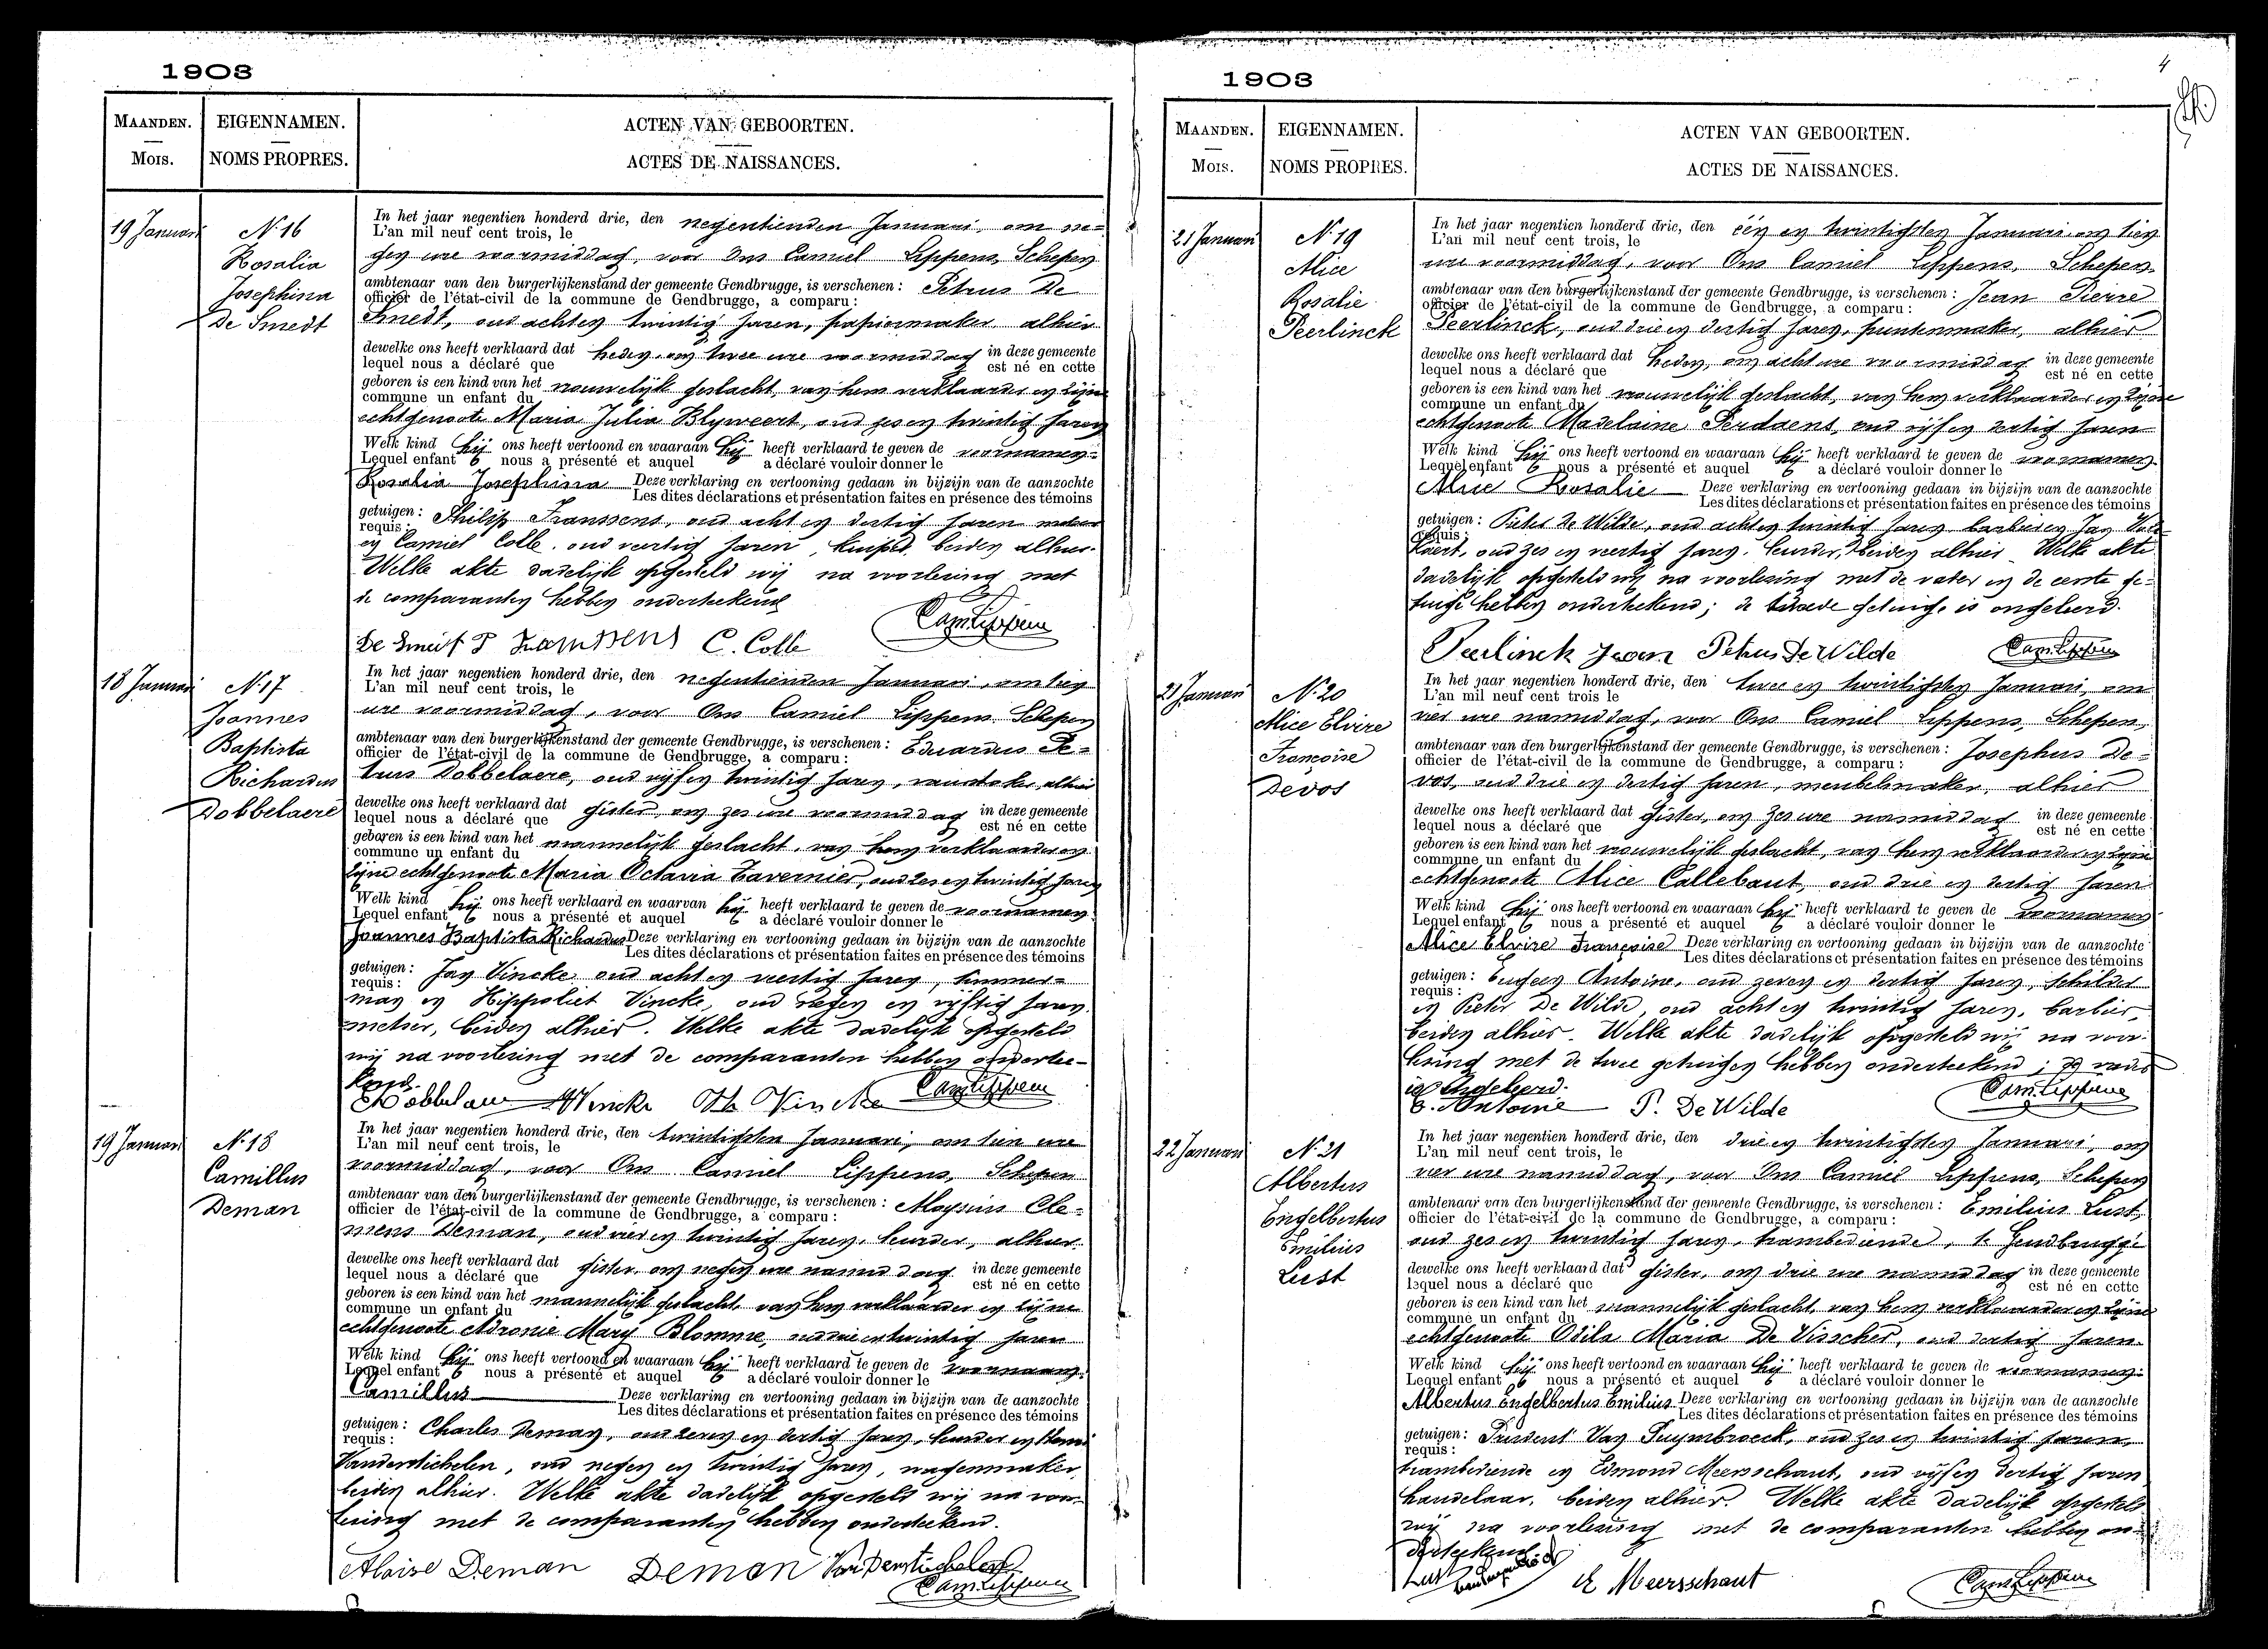 1903
MAANDEN.
Mois.
EIGENNAMEN.
NOMS PROPRES.
ACTEN VAN GEBOORTEN.
ACTES DE NAISSANCES.
19 Januari
N. 16
Rosalia
Josephina
De Smedt
In het jaar negentien honderd drie, den negentienden Januari, om ne-
L'an mil neuf cent trois, le
gen ure voormiddag, voor Ons Camiel Lippens, Schepen
ambtenaar van den burgerlijkenstand der gemeente Gendbrugge, is verschenen : Petrus De
officier de l'état-civil de la commune de Gendbrugge, a comparu :
Smedt, oud achten twintig jaren, papiermaker alhier
dewelke ons heeft verklaard dat heden, om twee ure voormiddag in deze gemeente
lequel nous a déclaré que est né en cette
geboren is een kind van het vrouwelijk geslacht, van hem verklaarder en zijne
commune un enfant du
echtgenoote Maria Julia Blyweert, oud zes en twintig jaren
Welk kind hij ons heeft vertoond en waaraan hij heeft verklaard te geven de voornamen
Lequel enfant nous a présenté et auquel a déclaré vouloir donner le
Rosalia Josephina Deze verklaring en vertooning gedaan in bijzijn van de aanzochte
Les dites déclarations et présentation faites en présence des témoins
getuigen : Philip Franssens, oud acht en dertig jaren
requis :
en Camiel Colle, oud veertig jaren, beiden alhier.
Welke akte dadelijk opgesteld wij na voorlezing met
de comparanten hebben onderteekend
De Smedt P Franssens C. Colle Cam. Lippens
18 Januari
N. 17
Joannes
Baptista
Richardus
Dobbelaere
In het jaar negentien honderd drie, den negentienden Januari, om tien
L'an mil neuf cent trois, le
ure voormiddag, voor Ons Camiel Lippens, Schepen
ambtenaar van den burgerlijkenstand der gemeente Gendbrugge, is verschenen : Eduardus Pe-
officier de l'état-civil de la commune de Gendbrugge, a comparu :
trus Dobbelaere, oud vijf en twintig jaren, alhier
dewelke ons heeft verklaard dat gister, om zes ure voormiddag in deze gemeente
lequel nous a déclaré que est né en cette
geboren is een kind van het mannelijk geslacht, van hem verklaarder en
commune un enfant du
zijne echtgenoote Maria Octavia Tavernier, oud zes en twintig jaren
Welk kind hij ons heeft verklaard en waarvan hij heeft verklaard te geven de voornamen
Lequel enfant nous a présenté et auquel a déclaré vouloir donner le
Joannes Baptista Richardus Deze verklaring en vertooning gedaan in bijzijn van de aanzochte
Les dites déclarations et présentation faites en présence des témoins
getuigen : Jan Vincke oud acht en veertig jaren, timmer-
requis :
man en Hippoliet Vincke, oud negen en vijftig jaren,
metser, beiden alhier. Welke akte dadelijk opgesteld
wij na voorlezing met de comparanten hebben ondertee-
kend.
Dobbelaere Vincke H. Vincke Cam. Lippens
19 Januari
N. 18
Camillus
Deman
In het jaar negentien honderd drie, den twintigsten Januari, om tien ure
L'an mil neuf cent trois, le
voormiddag, voor Ons Camiel Lippens, Schepen
ambtenaar van den burgerlijkenstand der gemeente Gendbrugge, is verschenen : Aloysius Cle-
officier de l'état-civil de la commune de Gendbrugge, a comparu :
mens Deman, oud vier en twintig jaren, kuurder, alhier
dewelke ons heeft verklaard dat gister, om negen ure namiddag in deze gemeente
lequel nous a déclaré que est né en cette
geboren is een kind van het mannelijk geslacht, van hem verklaarder en zijne
commune un enfant du
echtgenoote Adronie Mary Blomme, oud drie en twintig jaren
Welk kind hij ons heeft vertoond en waaraan hij heeft verklaard te geven de voornaam
Lequel enfant nous a présenté et auquel a déclaré vouloir donner le
Camillus Deze verklaring en vertooning gedaan in bijzijn van de aanzochte
Les dites déclarations et présentation faites en présence des témoins
getuigen : Charles Deman, oud zeven en dertig jaren, kuurder en Remi
requis :
Vanderstichelen, oud negen en twintig jaren, wagenmaker,
beiden alhier. Welke akte dadelijk opgesteld wij na voor-
lezing met de comparanten hebben onderteekend.
Aloise Deman Deman Vanderstichelen
Cam. Lippens
1903
4
MAANDEN.
Mois.
EIGENNAMEN.
NOMS PROPRES.
ACTEN VAN GEBOORTEN.
ACTES DE NAISSANCES.
21 Januari
N. 19
Alice
Rosalie
Peerlinck
In het jaar negentien honderd drie, den één en twintigsten Januari om tien
L'an mil neuf cent trois, le
ure voormiddag, voor Ons Camiel Lippens, Schepen
ambtenaar van den burgerlijkenstand der gemeente Gendbrugge, is verschenen : Jean Pierre
officier de l'état-civil de la commune de Gendbrugge, a comparu :
Peerlinck, oud drie en dertig jaren, puntenmaker, alhier
dewelke ons heeft verklaard dat heden, om acht ure voormiddag in deze gemeente
lequel nous a déclaré que est né en cette
geboren is een kind van het vrouwelijk geslacht, van hem verklaarder en zijne
commune un enfant du
echtgenoote Madelaine Perdaens, oud vijf en dertig jaren
Welk kind hij ons heeft vertoond en waaraan hij heeft verklaard te geven de voornamen
Lequel enfant nous a présenté et auquel a déclaré vouloir donner le
Alice Rosalie Deze verklaring en vertooning gedaan in bijzijn van de aanzochte
Les dites déclarations et présentation faites en présence des témoins
getuigen : Pieter De Wilde, oud acht en twintig jaren barbier en Jan
requis :
oud zes en veertig jaren, kuurder, beiden alhier. Welke akte
dadelijk opgesteld wij na voorlezing met de vader en de eerste ge-
tuige hebben onderteekend; de tweede getuige is ongeleerd.
Peerlinck Jean Petrus De Wilde Cam. Lippens
21 Januari
N. 20
Alice Elvire
Francoise
Devos
In het jaar negentien honderd drie, den twee en twintigsten Januari, om
L'an mil neuf cent trois le
vier ure namiddag, voor Ons Camiel Lippens, Schepen,
ambtenaar van den burgerlijkenstand der gemeente Gendbrugge, is verschenen : Josephus De-
officier de l'état-civil de la commune de Gendbrugge, a comparu :
vos, oud drie en dertig jaren, meubelmaker, alhier
dewelke ons heeft verklaard dat gister, om zes ure namiddag in deze gemeente
lequel nous a déclaré que est né en cette
geboren is een kind van het vrouwelijk geslacht, van hem verklaarder en zijne
commune un enfant du
echtgenoote Alice Callebaut, oud drie en dertig jaren
Welk kind hij ons heeft vertoond en waaraan hij heeft verklaard te geven de voornamen
Lequel enfant nous a présenté et auquel a déclaré vouloir donner le
Alice Elvire Françoise Deze verklaring en vertooning gedaan in bijzijn van de aanzochte
Les dites déclarations et présentation faites en présence des témoins
getuigen : Eugeen Antoine, oud zeven en dertig jaren, schilder
requis :
en Pieter De Wilde, oud acht en twintig jaren, barbier,
beiden alhier. Welke akte dadelijk opgesteld wij na voor-
lezing met de twee getuigen hebben onderteekend; de vader
is ongeleerd.
E. Antoine P. De Wilde Cam. Lippens
22 Januari
N. 21
Albertus
Engelbertus
Emilius
Lust
In het jaar negentien honderd drie, den drie en twintigsten Januari, om
L'an mil neuf cent trois, le
vier ure namiddag, voor Ons Camiel Lippens, Schepen
ambtenaar van den burgerlijkenstand der gemeente Gendbrugge, is verschenen : Emilius Lust,
officier de l'état-civil de la commune de Gendbrugge, a comparu :
oud zes en twintig jaren, trambediende, te Gendbrugge
dewelke ons heeft verklaard dat gister, om drie ure namiddag in deze gemeente
lequel nous a déclaré que est né en cette
geboren is een kind van het mannelijk geslacht, van hem verklaarder en zijne
commune un enfant du
echtgenoote Odila Maria De Visscher, oud dertig jaren
Welk kind hij ons heeft vertoond en waaraan hij heeft verklaard te geven de voornamen
Lequel enfant nous a présenté et auquel a déclaré vouloir donner le
Albertus Engelbertus Emilius Deze verklaring en vertooning gedaan in bijzijn van de aanzochte
Les dites déclarations et présentation faites en présence des témoins
getuigen : Prudent Van Puymbroeck, oud zes en twintig jaren,
requis :
trambediende en Edmond Meersschaut, oud vijf en dertig jaren
handelaar, beiden alhier. Welke akte dadelijk opgesteld
wij na voorlezing met de comparanten hebben on-
derteekend
Lust E Meersschaut Cam. Lippens